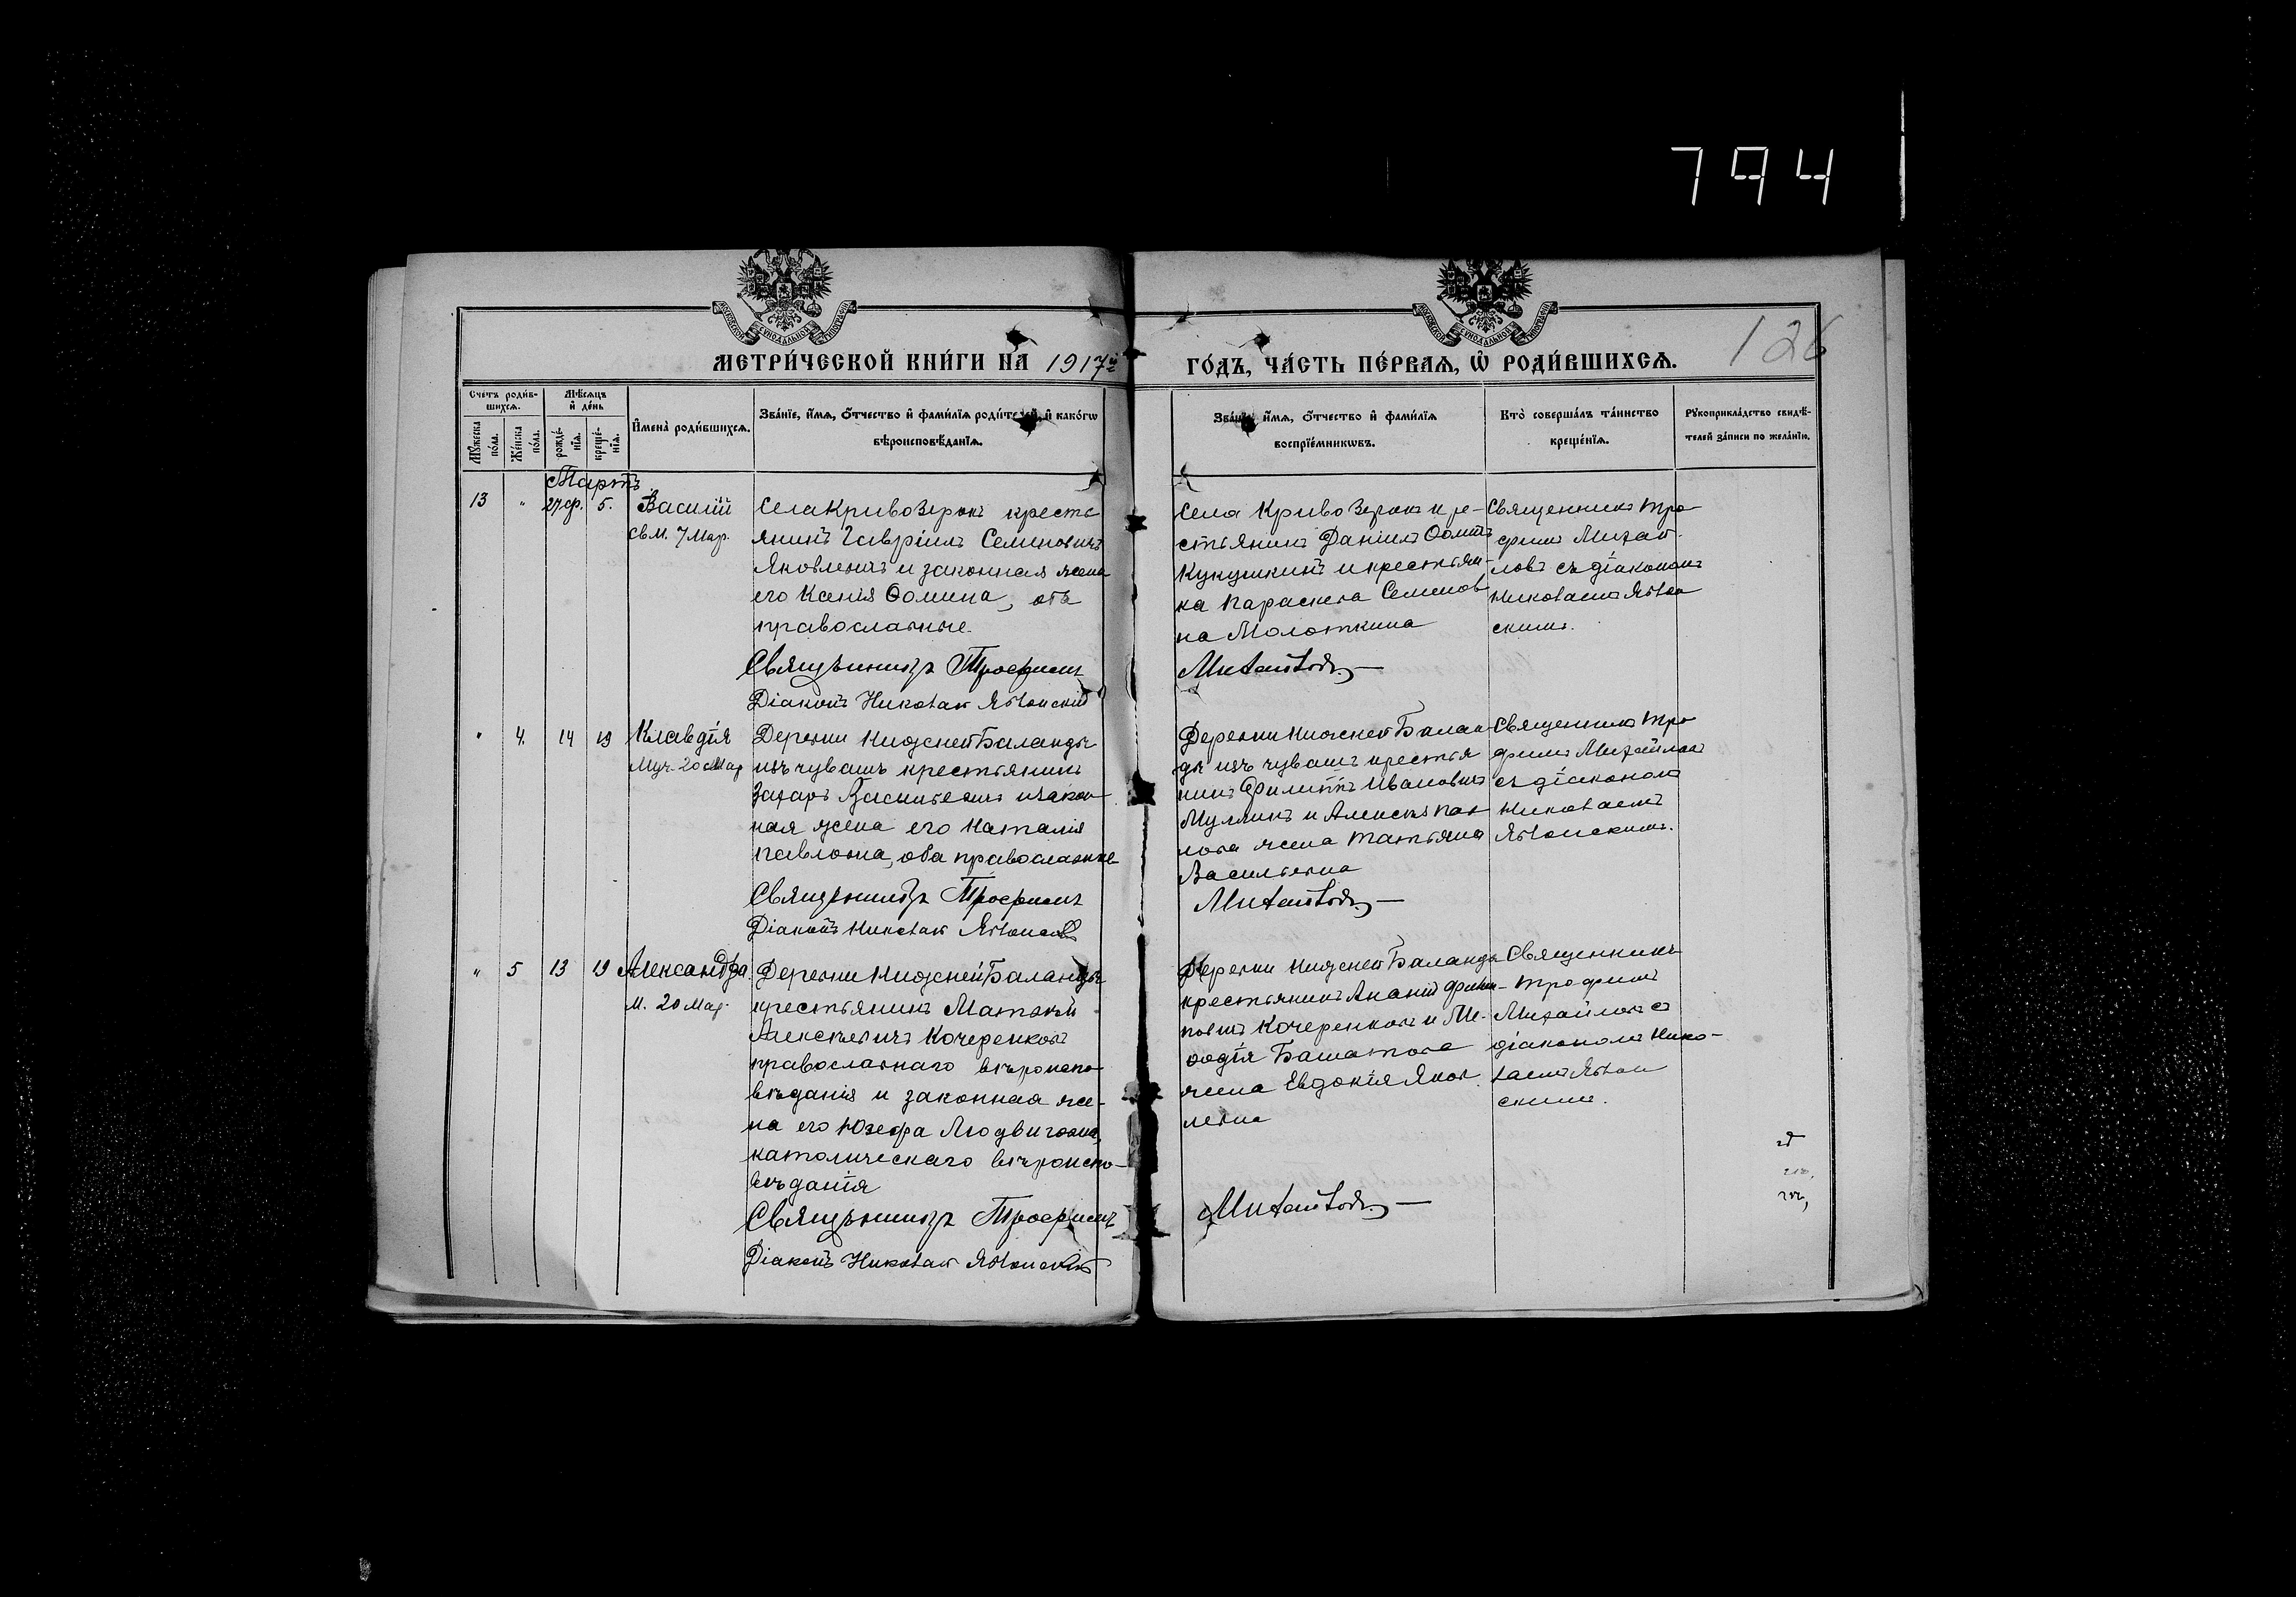 794
126
МЕТРИ́ЧЕСКОЙ КНИ́ГИ НА 1917й
ГО́ДЪ, ЧА́СТЬ ПЕ́РВАѦ, Ѡ҆ РОДИ́ВШИХСѦ.
Сче́тъ роди́в-
шихсѧ.
Мѣ́сѧцъ
и҆ де́нь
Мꙋ́жеска по́ла.
Же́нска по́ла.
рожде́-
нїѧ.
креще́-
нїѧ.
И҆мена̀ роди́вшихсѧ.
Зва́нїе, и҆́мѧ, ѻ҆́тчество и҆ фами́лїѧ роди́телей, и҆ како́гѡ
вѣроисповѣ́данїѧ.
Зва́нїе, и҆́мѧ, ѻ҆́тчество и҆ фами́лїѧ
воспрїе́мникѡвъ.
Кто̀ соверша́лъ та́инство
креще́нїѧ.
Рꙋкоприкла́дство свидѣ́-
телей за́писи по жела́нїю.
Мартъ.
13 " 27 ф. 5.
Василій
Св М. 7 Мар.
Села Кривозерокъ кресть
янинъ Гавріилъ Семеновичъ
Яковлевичъ и законная жена
его Ксенія Ѳомина, оба
православные.
Священникъ Трофимъ
Діаконъ Николай Яблонскій
Села Кривозерокъ кре-
стьянинъ Даніилъ Ѳомичъ
Кукушкинъ и крестьян-
ка Параскева Семенов
на Молоткина
Михайловъ
Священникъ Тро
фимъ Михай-
ловъ съ діакономъ
Николаемъ Яблон
скимъ.
" 4. 14 19
Клавдія
Муч. 20 Мар
Деревни Нижней Баланды
изъ чувашъ крестьянинъ
Захаръ Васильевичъ и закон-
ная жена его Наталія
Павловна, оба православные
Священникъ Трофимъ
Діаконъ Николай Яблонскій
Деревни Нижней Балан
ды изъ чувашъ крестья
нинъ Филиппъ Ивановичъ
Муллинъ и Алексѣя Пав
лова жена Татьяна
Васильевна
Михайловъ
Священникъ Тро
фимъ Михайловъ
съ діакономъ
Николаемъ
Яблонскимъ.
" 5 13 19
Александра.
М. 20 Мар.
Деревни Нижней Баланды
крестьянинъ Матвѣй
Алексѣевичъ Кочеренковъ
православнаго вѣроиспо-
вѣданія и законная же-
на его Юзефа Людвиговна,
католическаго вѣроиспо-
вѣданія
Священникъ Трофимъ
Діаконъ Николай Яблонскій
Деревни Нижней Баланды
крестьянинъ Ананій Филип-
повъ Кочеренковъ и Ме-
ѳодія Башатова
жена Евдокія Яков
левна
Михайловъ
Священникъ
Трофимъ
Михайловъ съ
діакономъ Нико-
лаемъ Яблон
скимъ.